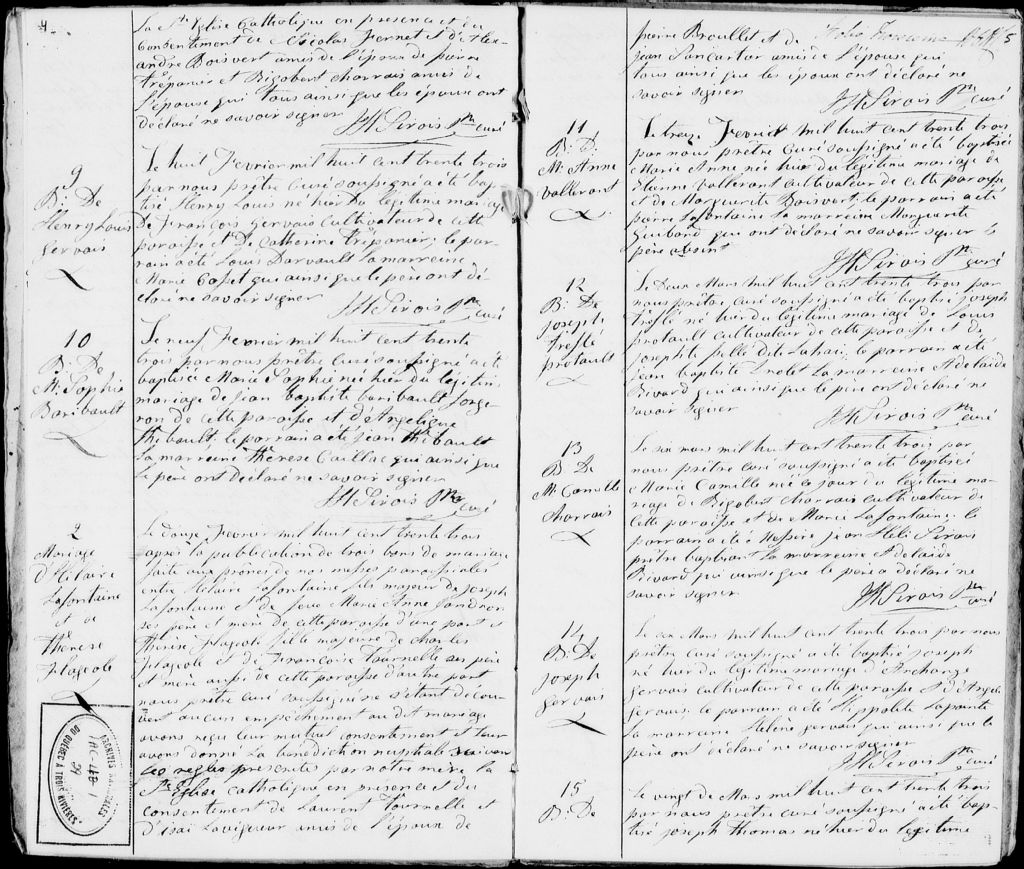 4
La Ste Eglise Catholique en presence et du
consentement de Nicolas Fernet et d'Alex-
andre Boisvert amis de l'époux de pierre
trépanier et Rigobert Charrais amis de
l'épouse qui tous ainsi que les époux ont
déclaré ne savoir signer
JH Sirois Ptre curé
9
B: De
Henry Louis
Gervais
Le huit Fevrier mil huit cent trente trois
par nous prêtre curé soussigné a été bap-
tisé Henry Louis né hier du legitime mariage
de François Gervais Cultivateur de cette
paroisse et de Catherine trépanier; le par-
rain a été Louis Darvault la marreine
Marie Casset qui ainsi que le père ont dé-
claré ne savoir signer
JH Sirois Ptre curé
10
B: De
M: Sophie
Baribault
Le neuf Fevrier mil huit cent trente
trois par nous prêtre curé soussigné a été
baptisée Marie Sophie née hier du légitime
mariage de jean baptiste baribault forge-
ron de cette paroisse et d'Angelique
thibault; le parrain a été jean thibault
la marreine Thérese Caillac qui ainsi que
le père ont déclaré ne savoir signer
JH Sirois Ptre curé
2
Mariage
d'Hilaire
Lafontaine
et de
Thérese
Flageole
Le douze Fevrier mil huit cent trente trois
après la publication de trois bans de mariage
faite aux prônes de nos messes paroissiales
entre Hilaire Lafontaine fils majeur de joseph
Lafontaine et de feue Marie Anne Gendron
ses père et mère de cette paroisse d'une part et
Thérese Flageole fille majeure de charles
Flageole et de Françoise Tournelle ses père
et mère aussi de cette paroisse d'autre part
nous prêtre curé soussigné ne s'étant décou-
vert aucun empéchement au dit mariage
avons reçu leur mutuel consentement et leur
avons donné la bénédiction nuptiale suivant
les regles prescrites par notre mère la
Ste Eglise catholique en presence et du
consentement de Laurent Tournelle et
d'Isai Lavigueur amis de l'époux de
ARCHIVES NATIONALES
DU QUEBEC A TROIS RIVIERES
5
pierre Brouillet et de
jean amis de l'épouse qui
tous ainsi que les époux ont déclaré ne
savoir signer
JH Sirois Ptre curé
11
B: D
M: Anne
Vallerant
Le treize Fevrier mil huit cent trente trois
par nous prêtre curé soussigné a été baptisée
Marie Anne née hier du légitime mariage de
Etienne Vallerant Cultivateur de cette paroisse
et de Marguerite Boisvert; le parrain a été
pierre Lafontaine la marreine Marguerite
Guibord qui ont déclaré ne savoir signer le
père absent
JH Sirois Ptre curé
12
B: De
joseph
treflé
protault
Le Deux Mars mil huit cent trente trois par
nous prêtre curé soussigné a été baptisé joseph
treflé né hier du légitime mariage de Louis
protault cultivateur de cette paroisse et de
josephte dite; le parrain a été
jean baptiste la marreine Adelaide
Rivard qui ainsi que le père ont déclaré ne
savoir signer
JH Sirois Ptre curé
13
B: De
M: Camille
Charrais
Le six mars mil huit cent trente trois par
nous prêtre curé soussigné a été baptisée
Marie Camille née le jour du légitime ma-
riage de Rigobert charrais cultivateur de
cette paroisse et de Marie Lafontaine; le
parrain a été Messire jean Héli Sirois
prêtre baptisant la marreine Adelaide
Rivard qui ainsi que le père a déclaré ne
savoir signer
JH Sirois Ptre curé
14
B: De
joseph
Gervais
Le dix Mars mil huit cent trente trois par nous
prêtre curé soussigné a été baptisé joseph
né hier du légitime mariage d'Archange
Gervais cultivateur de cette paroisse et d'Angele
Gervais; le parrain a été Hippolite Lapointe
la marreine Helène Gervais qui ainsi que le
père ont déclaré ne savoir signer
JH Sirois Ptre curé
15
B: De
Le vingt de Mars mil huit cent trente trois
par nous prêtre curé soussigné a été bap-
tisé joseph Thomas né hier du légitime